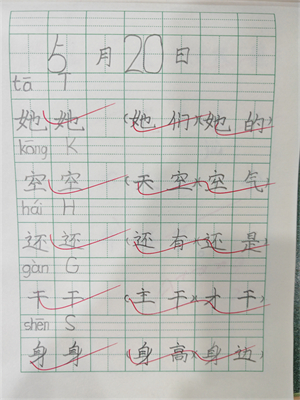 5月20日
tā T
她 她 (她们)(她的)
kōng K
空 空 (天空)(空气)
hái H
还 还 (还有)(还是)
gàn G
干 干 (主干)(才干)
shēn S
身 身 (身高)(身边)